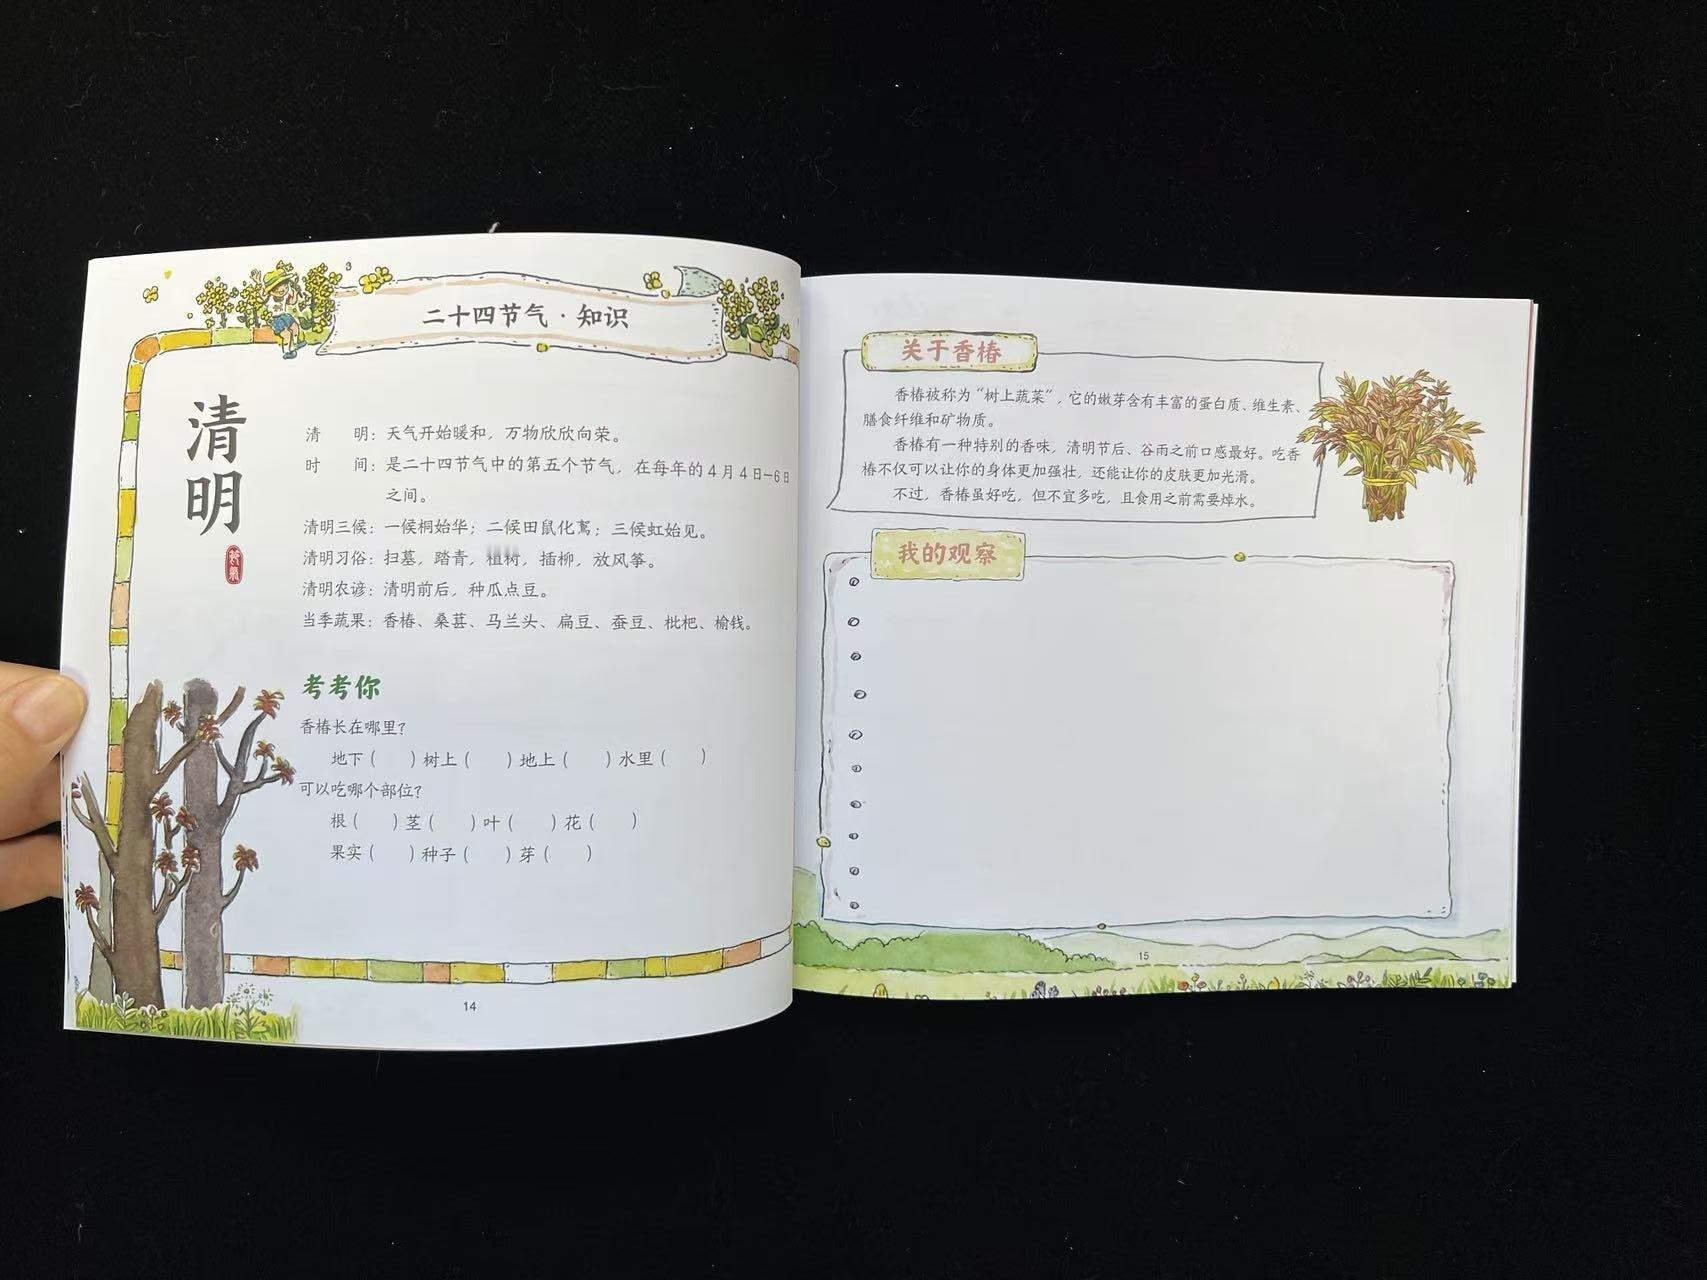 二十四节气·知识
清明
节气
清 明：天气开始暖和，万物欣欣向荣。
时 间：是二十四节气中的第五个节气，在每年的4月4日—6日
之间。
清明三候：一候桐始华；二候田鼠化鴽；三候虹始见。
清明习俗：扫墓，踏青，植树，插柳，放风筝。
清明农谚：清明前后，种瓜点豆。
当季蔬果：香椿、桑葚、马兰头、扁豆、蚕豆、枇杷、榆钱。
考考你
香椿长在哪里？
地下（ ）树上（ ）地上（ ）水里（ ）
可以吃哪个部位？
根（ ）茎（ ）叶（ ）花（ ）
果实（ ）种子（ ）芽（ ）
14
关于香椿
香椿被称为“树上蔬菜”，它的嫩芽含有丰富的蛋白质、维生素、
膳食纤维和矿物质。
香椿有一种特别的香味，清明节后、谷雨之前口感最好。吃香
椿不仅可以让你的身体更加强壮，还能让你的皮肤更加光滑。
不过，香椿虽好吃，但不宜多吃，且食用之前需要焯水。
我的观察
15